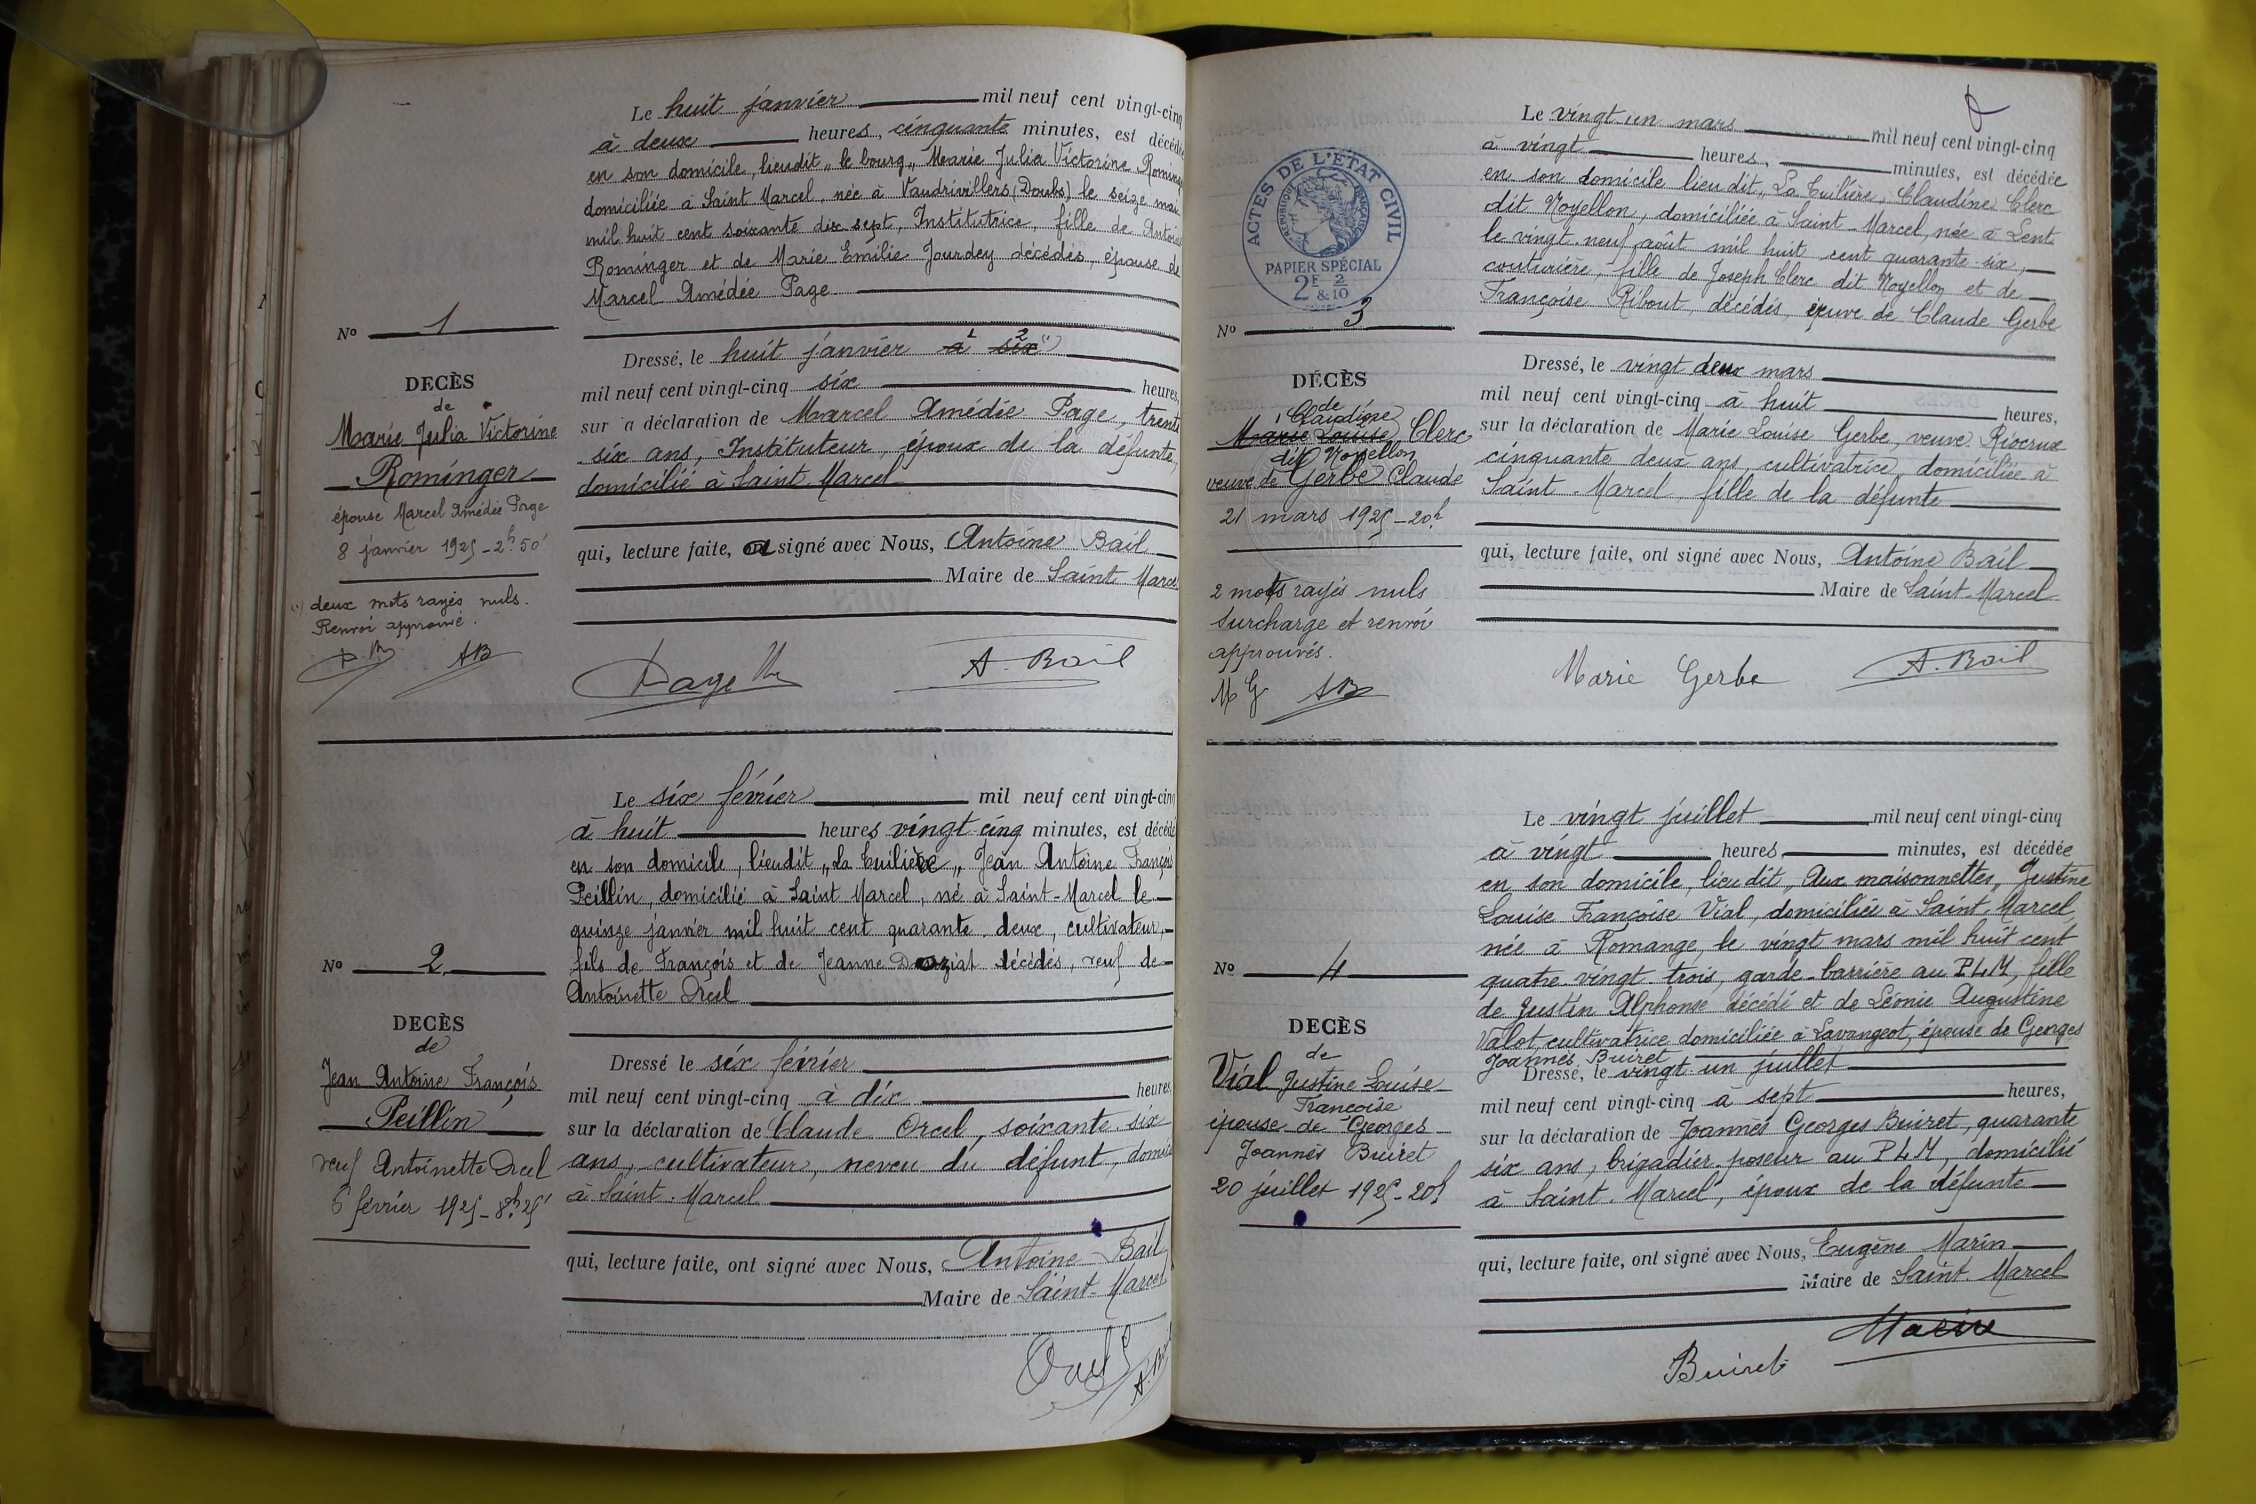 Le huit janvier mil neuf cent vingt-cinq
à deux heures, cinquante minutes, est décédée
en son domicile, lieudit „le bourg„ Marie Julia Victorine Rominger
domiciliée à Saint Marcel, née à Vaudrivillers (Doubs) le seize mai
mil huit cent soixante dix sept, Institutrice, fille de Antoine
Rominger et de Marie Emilie Jourdey décédés, épouse de
Marcel Amédée Page
No 1
Dressé, le huit janvier à 1 six 2 (1)
mil neuf cent vingt-cinq six heures,
sur a déclaration de Marcel Amédée Page, trente
six ans, Instituteur, époux de la défunte,
domicilié à Saint Marcel
qui, lecture faite, a signé avec Nous, Antoine Bail
Maire de Saint Marcel
DECÈS
de
Marie Julia Victorine
Rominger
épouse Marcel Amédée Page
8 janvier 1925 - 2h 50'
(1) deux mots rayés nuls.
Renvoi approuvé.
AB
Page
A. Bail
Le six février mil neuf cent vingt-cinq
à huit heures vingt cinq minutes, est décédé
en son domicile, lieudit „la Cuilière„ Jean Antoine François
Peillin, domicilié à Saint Marcel, né à Saint-Marcel le
quinze janvier mil huit cent quarante-deux, cultivateur,
fils de François et de Jeanne décédés, veuf de
Antoinette Orcel
No 2
DECÈS
de
Jean Antoine François
Peillin
veuf Antoinette Orcel
6 février 1925 - 8h 25'
Dressé le six février
mil neuf cent vingt-cinq à dix heures
sur la déclaration de Claude Orcel, soixante-six
ans, cultivateur, neveu du défunt, domicilié
à Saint-Marcel
qui, lecture faite, ont signé avec Nous, Antoine Bail
Maire de Saint-Marcel
Orcel
A. Bail
Le vingt-un mars mil neuf cent vingt-cinq
à vingt heures, minutes, est décédée
en son domicile lieu dit „La Cuilière„ Claudine Clerc
dit Noyellon, domiciliée à Saint-Marcel, née à Lent
le vingt-neuf août mil huit cent quarante-six,
couturière, fille de Joseph Clerc dit Noyellon et de
Françoise Ribout, décédés, veuve de Claude Gerbe
ACTES DE L'ÉTAT CIVIL
RÉPUBLIQUE FRANÇAISE
PAPIER SPÉCIAL
2F 2
& 10
No 3
DÉCÈS
de
Claudine
Marie Louise Clerc
dit Noyellon
veuve de Gerbe Claude
21 mars 1925 - 20h
2 mots rayés nuls
Surcharge et renvoi
approuvés.
M G AB
Dressé, le vingt deux mars
mil neuf cent vingt-cinq à huit heures,
sur la déclaration de Marie Louise Gerbe, veuve Riocrux
cinquante deux ans, cultivatrice, domiciliée à
Saint-Marcel fille de la défunte
qui, lecture faite, ont signé avec Nous, Antoine Bail
Maire de Saint-Marcel
Marie Gerbe
A. Bail
Le vingt juillet mil neuf cent vingt-cinq
à vingt heures, minutes, est décédée
en son domicile, lieu dit „Aux maisonnettes„ Justine
Louise Françoise Vial, domiciliée à Saint-Marcel,
née à Romange, le vingt mars mil huit cent
quatre-vingt-trois, garde-barrière au PLM, fille
de Justin Alphonse décédé et de Léonie Augustine
Valot, cultivatrice domiciliée à Lavangeot, épouse de Georges
Joannès Buiret
No 4
DECÈS
de
Vial Justine Louise
Françoise
épouse de Georges
Joannès Buiret
20 juillet 1925 - 20h
Dressé, le vingt-un juillet
mil neuf cent vingt-cinq à sept heures,
sur la déclaration de Joannès Georges Buiret, quarante
six ans, brigadier-poseur au PLM, domicilié
à Saint-Marcel, époux de la défunte
qui, lecture faite, ont signé avec Nous, Eugène Marin
Maire de Saint-Marcel
Marin
Buiret